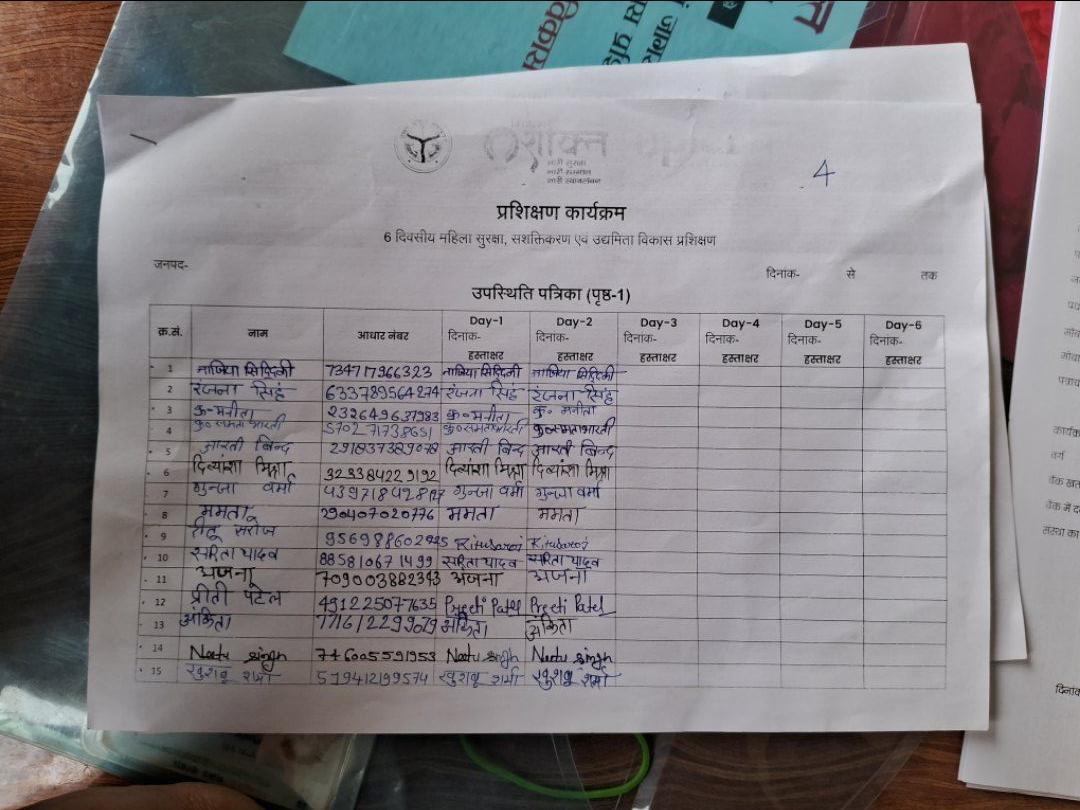 विकास
शक्ति
नारी सुरक्षा
नारी सम्मान
नारी स्वावलंबन
4
प्रशिक्षण कार्यक्रम
6 दिवसीय महिला सुरक्षा, सशक्तिकरण एवं उद्यमिता विकास प्रशिक्षण
जनपद- दिनांक- से तक
उपस्थिति पत्रिका (पृष्ठ-1)
क्र.सं. नाम आधार नंबर Day-1 Day-2 Day-3 Day-4 Day-5 Day-6
दिनांक- दिनांक- दिनांक- दिनांक- दिनांक- दिनांक-
हस्ताक्षर हस्ताक्षर हस्ताक्षर हस्ताक्षर हस्ताक्षर हस्ताक्षर
1 नाजिया सिद्दिकी 734717966323 नाजिया सिद्दिकी नाजिया सिद्दिकी
2 रंजना सिंह 633789564274 रंजना सिंह रंजना सिंह
3 कु० मनीता 232649637983 कु० मनीता कु० मनीता
4 कु० समता भारती 570271738651 कु० समता भारती कु० समता भारती
5 आरती बिन्द आरती बिन्द आरती बिन्द
6 दिव्यांशा मिश्रा 323384229192 दिव्यांशा मिश्रा दिव्यांशा मिश्रा
7 गुन्जा वर्मा गुन्जा वर्मा गुन्जा वर्मा
8 ममता 290407020776 ममता ममता
9 रीतू सरोज Ritu Saroj Ritu Saroj
10 सरिता यादव 885810671499 सरिता यादव सरिता यादव
11 अंजना अंजना अंजना
12 प्रीती पटेल 491225077635 Preeti Patel Preeti Patel
13 अंकिता 771612299079 अंकिता अंकिता
14 Neetu singh 746005591953 Neetu singh Neetu singh
15 खुशबू शर्मा 519412199574 खुशबू शर्मा खुशबू शर्मा